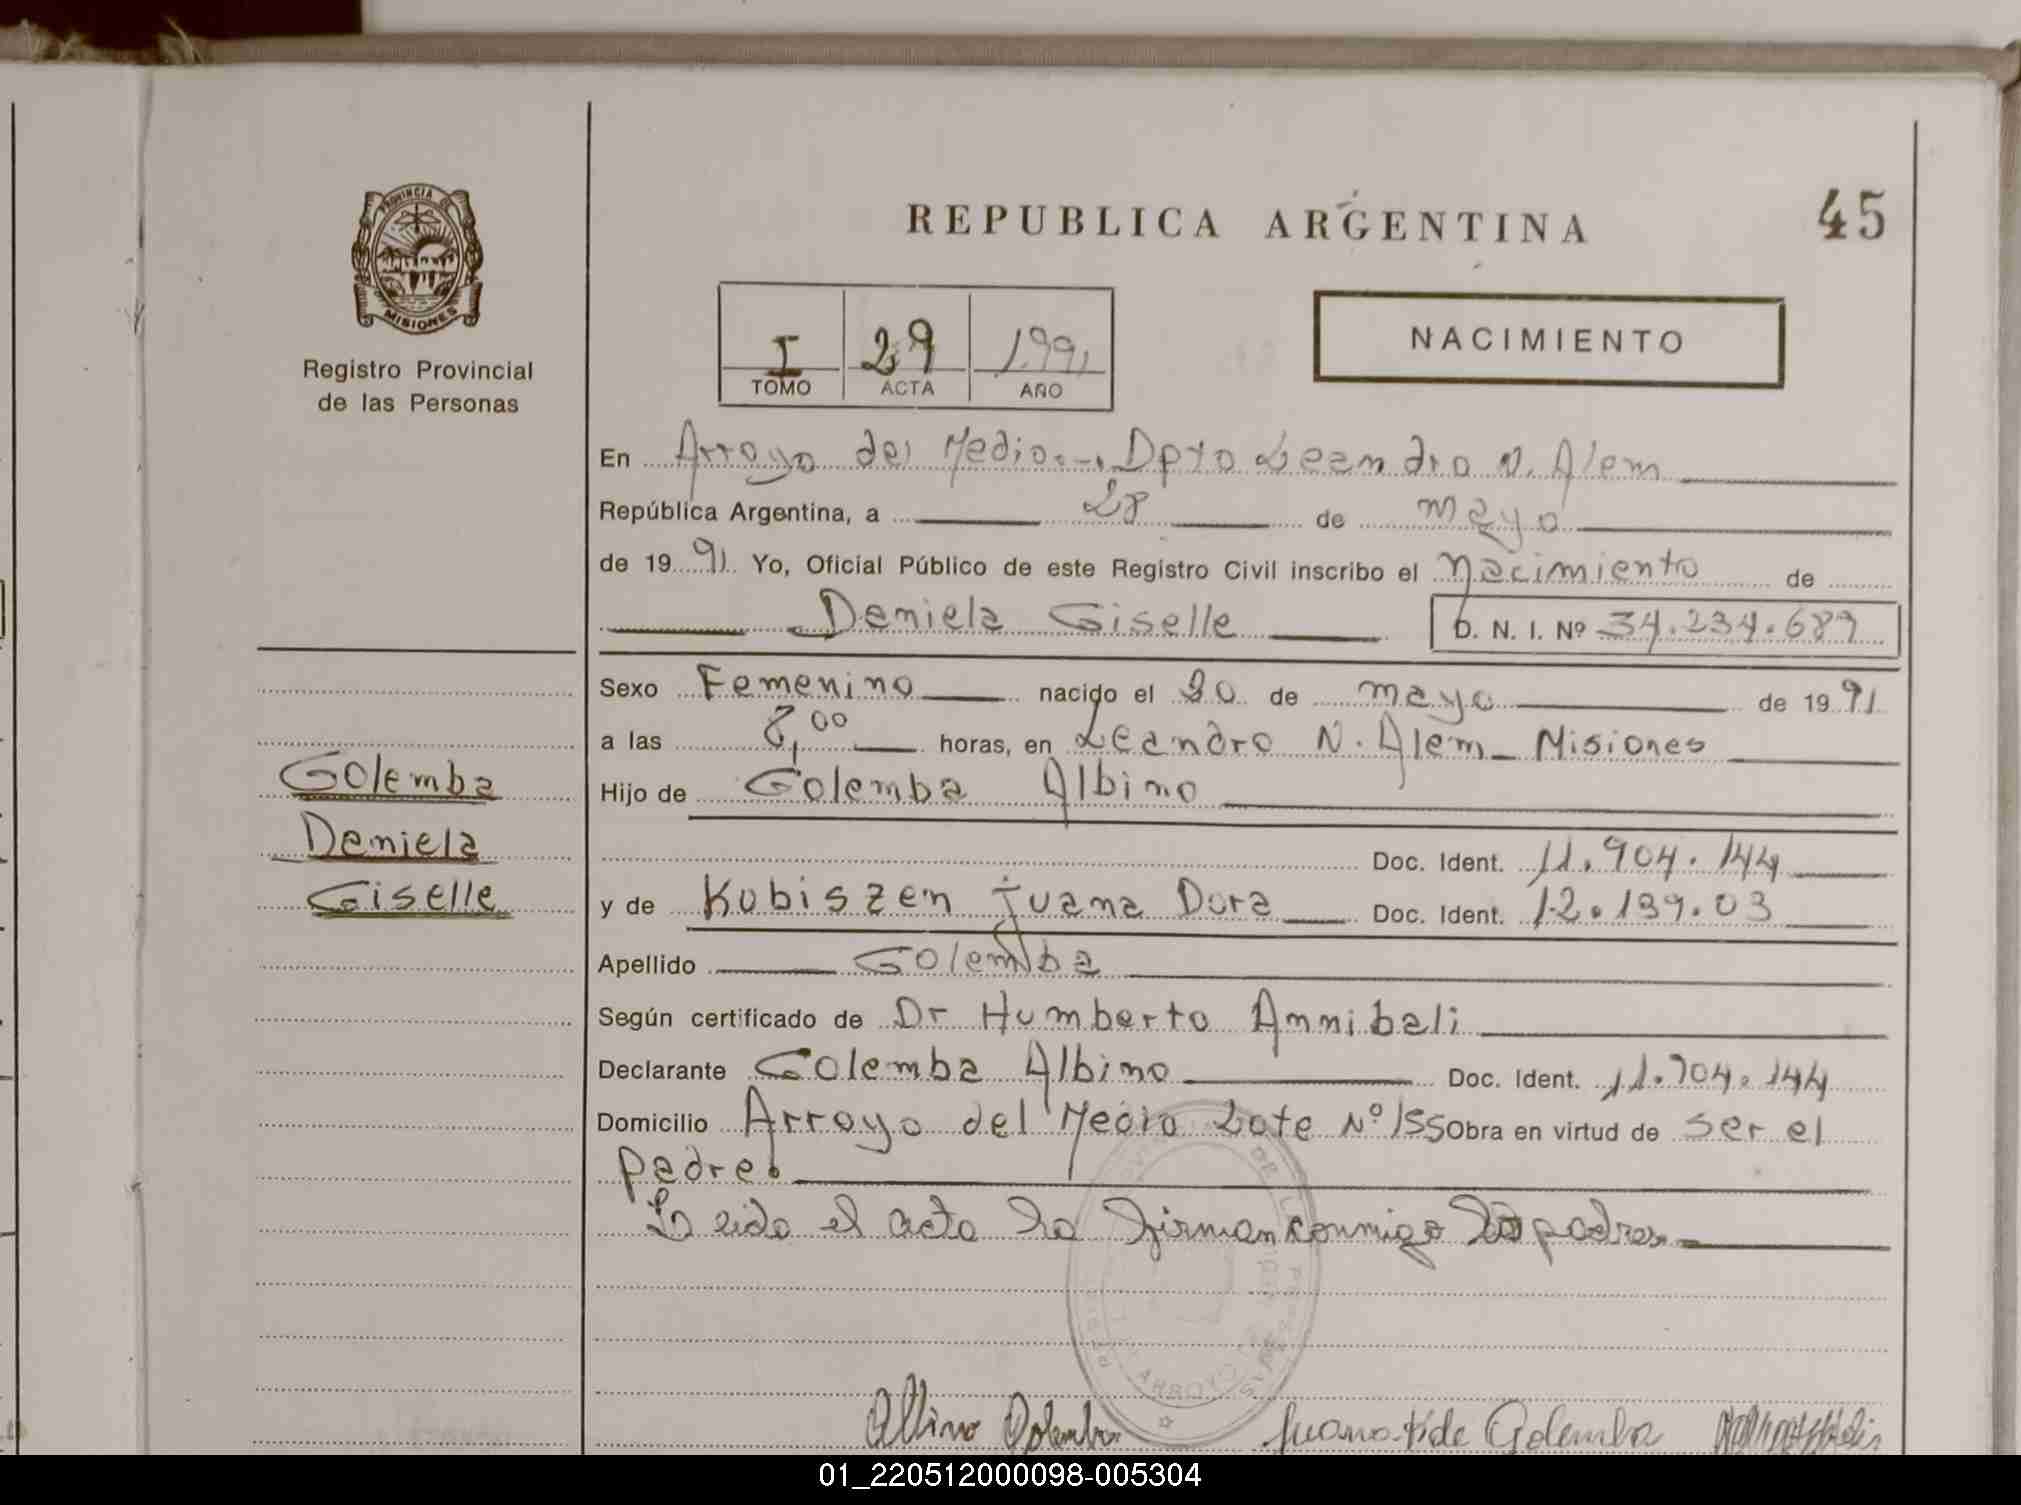 PROVINCIA DE
MISIONES
Registro Provincial
de las Personas
Golemba
Daniela
Giselle
REPUBLICA ARGENTINA
45
I 29 1.991
TOMO ACTA AÑO
NACIMIENTO
En Arroyo del Medio.-. Dpto Leandro N. Alem
República Argentina, a 28 de mayo
de 1991 Yo, Oficial Público de este Registro Civil inscribo el Nacimiento de
Daniela Giselle D. N. I. Nº 34.234.689
Sexo Femenino nacido el 20 de mayo de 1991
a las 8,00 horas, en Leandro N. Alem - Misiones
Hijo de Golemba Albino
Doc. Ident. 11.904.144
y de Kubiszen Juana Dora Doc. Ident. 12.139.03
Apellido Golemba
Según certificado de Dr Humberto Annibali
Declarante Golemba Albino Doc. Ident. 11.904.144
Domicilio Arroyo del Medio Lote Nº 155 Obra en virtud de ser el
padre.
Leido el acta la firman conmigo los padres.-
Albino Golemba Juana K de Golemba
ARROYO
01_220512000098-005304